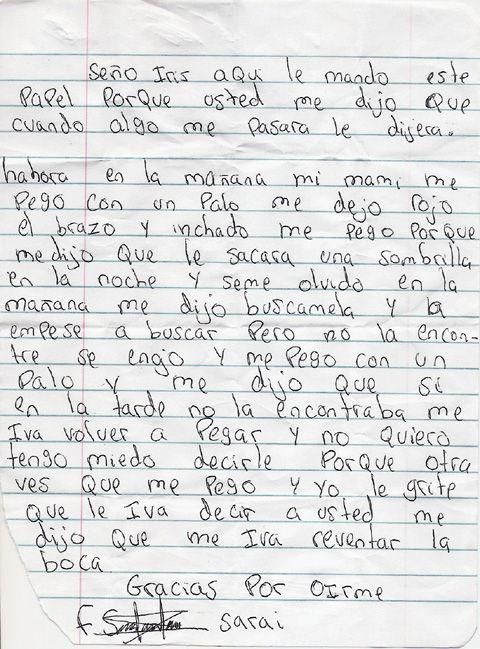 Seño Iris aQui le mando este
Papel PorQue usted me dijo Que
cuando algo me Pasara le dijera.
hahora en la mañana mi mami me
Pego con un Palo me dejo rojo
el brazo y inchado me Pego PorQue
medijo Que le sacara una sombrilla
en la noche y seme olvido en la
mañana me dijo buscamela y la
empese a buscar Pero no la encon-
tre se enojo y me Pego con un
Palo y me dijo Que si
en la tarde no la encontraba me
Iva volver a Pegar y no Quiero
tengo miedo decirle PorQue otra
ves Que me Pego y yo le grite
Que le Iva decir a usted me
dijo Que me Iva reventar la
boca
Gracias Por OIrme
F. Sarai